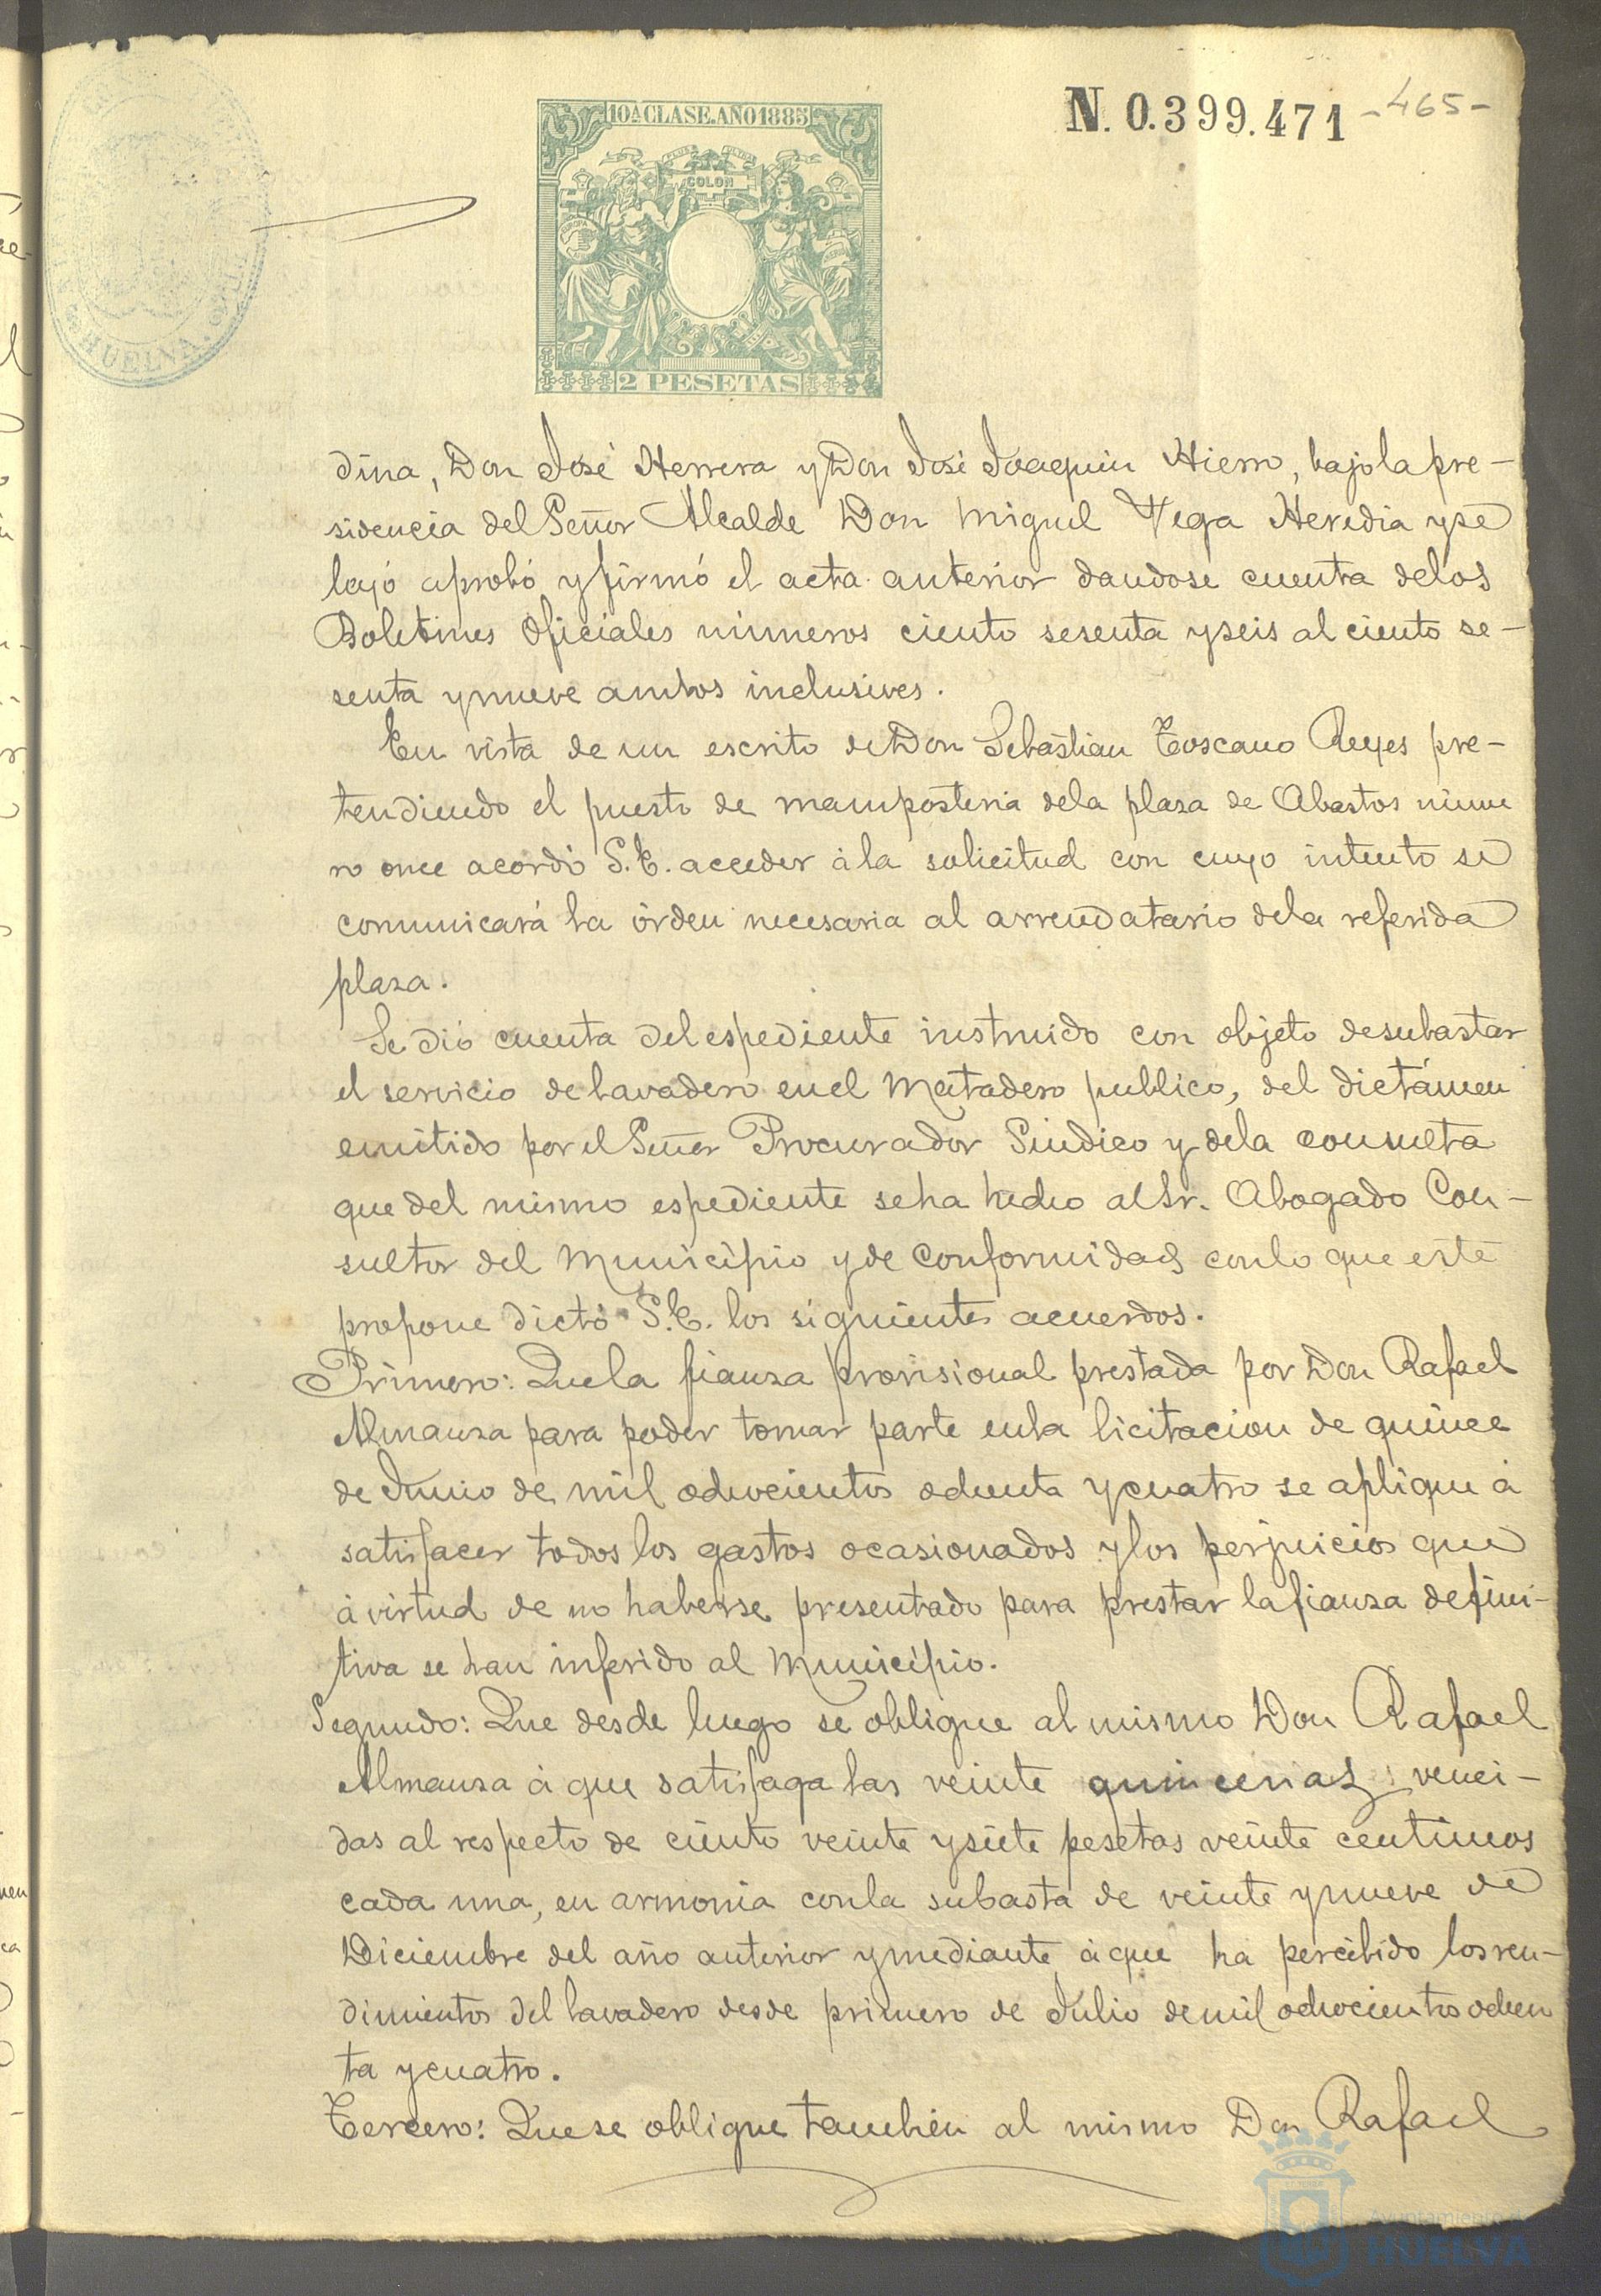 N. 0.399.471 -465-
10ª CLASE. AÑO 1885
PLUS ULTRA
COLON
2 PESETAS
HUELVA
dina, Don José Herrera y Don José Joaquin Hierro, bajo la pre-
sidencia del Señor Alcalde Don Miguel Vega Heredia y se
leyó aprobó y firmó el acta anterior dandose cuenta de los
Boletines Oficiales números ciento sesenta y seis al ciento se-
senta y nueve ambos inclusives.
En vista de un escrito de Don Sebastian Toscano Reyes pre-
tendiendo el puesto de mamposteria de la plaza de Abastos núme
ro once acordó S.E. acceder á la solicitud con cuyo intento se
comunicará la órden necesaria al arrendatario de la referida
plaza.
Se dió cuenta del espediente instruido con objeto de subastar
el servicio de lavadero en el Matadero publico, del dictámen
emitido por el Señor Procurador Sindico y de la consulta
que del mismo espediente se ha hecho al Sr. Abogado Con-
sultor del Municipio y de conformidad con lo que este
propone dictó S.E. los siguientes acuerdos.
Primero: Que la fianza provisional prestada por Don Rafael
Almansa para poder tomar parte en la licitacion de quince
de Junio de mil ochocientos ochenta y cuatro se aplique á
satisfacer todos los gastos ocasionados y los perjuicios que
á virtud de no haberse presentado para prestar la fianza defini-
tiva se han inferido al Municipio.
Segundo: Que desde luego se obligue al mismo Don Rafael
Almansa á que satisfaga las veinte quincenas venci-
das al respecto de ciento veinte y siete pesetas veinte centimos
cada una, en armonia con la subasta de veinte y nueve de
Diciembre del año anterior y mediante á que ha percibido los ren-
dimientos del lavadero desde primero de Julio de mil ochocientos ochen
ta y cuatro.
Tercero: Que se obligue tambien al mismo Don Rafael
Ayuntamiento
HUELVA